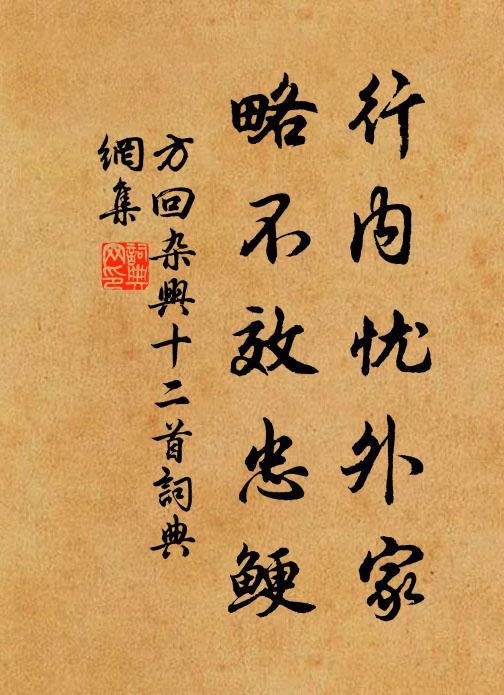 行内忧外家
略不效忠鲠
方回杂興十二首詞典
網集
詞典
网印